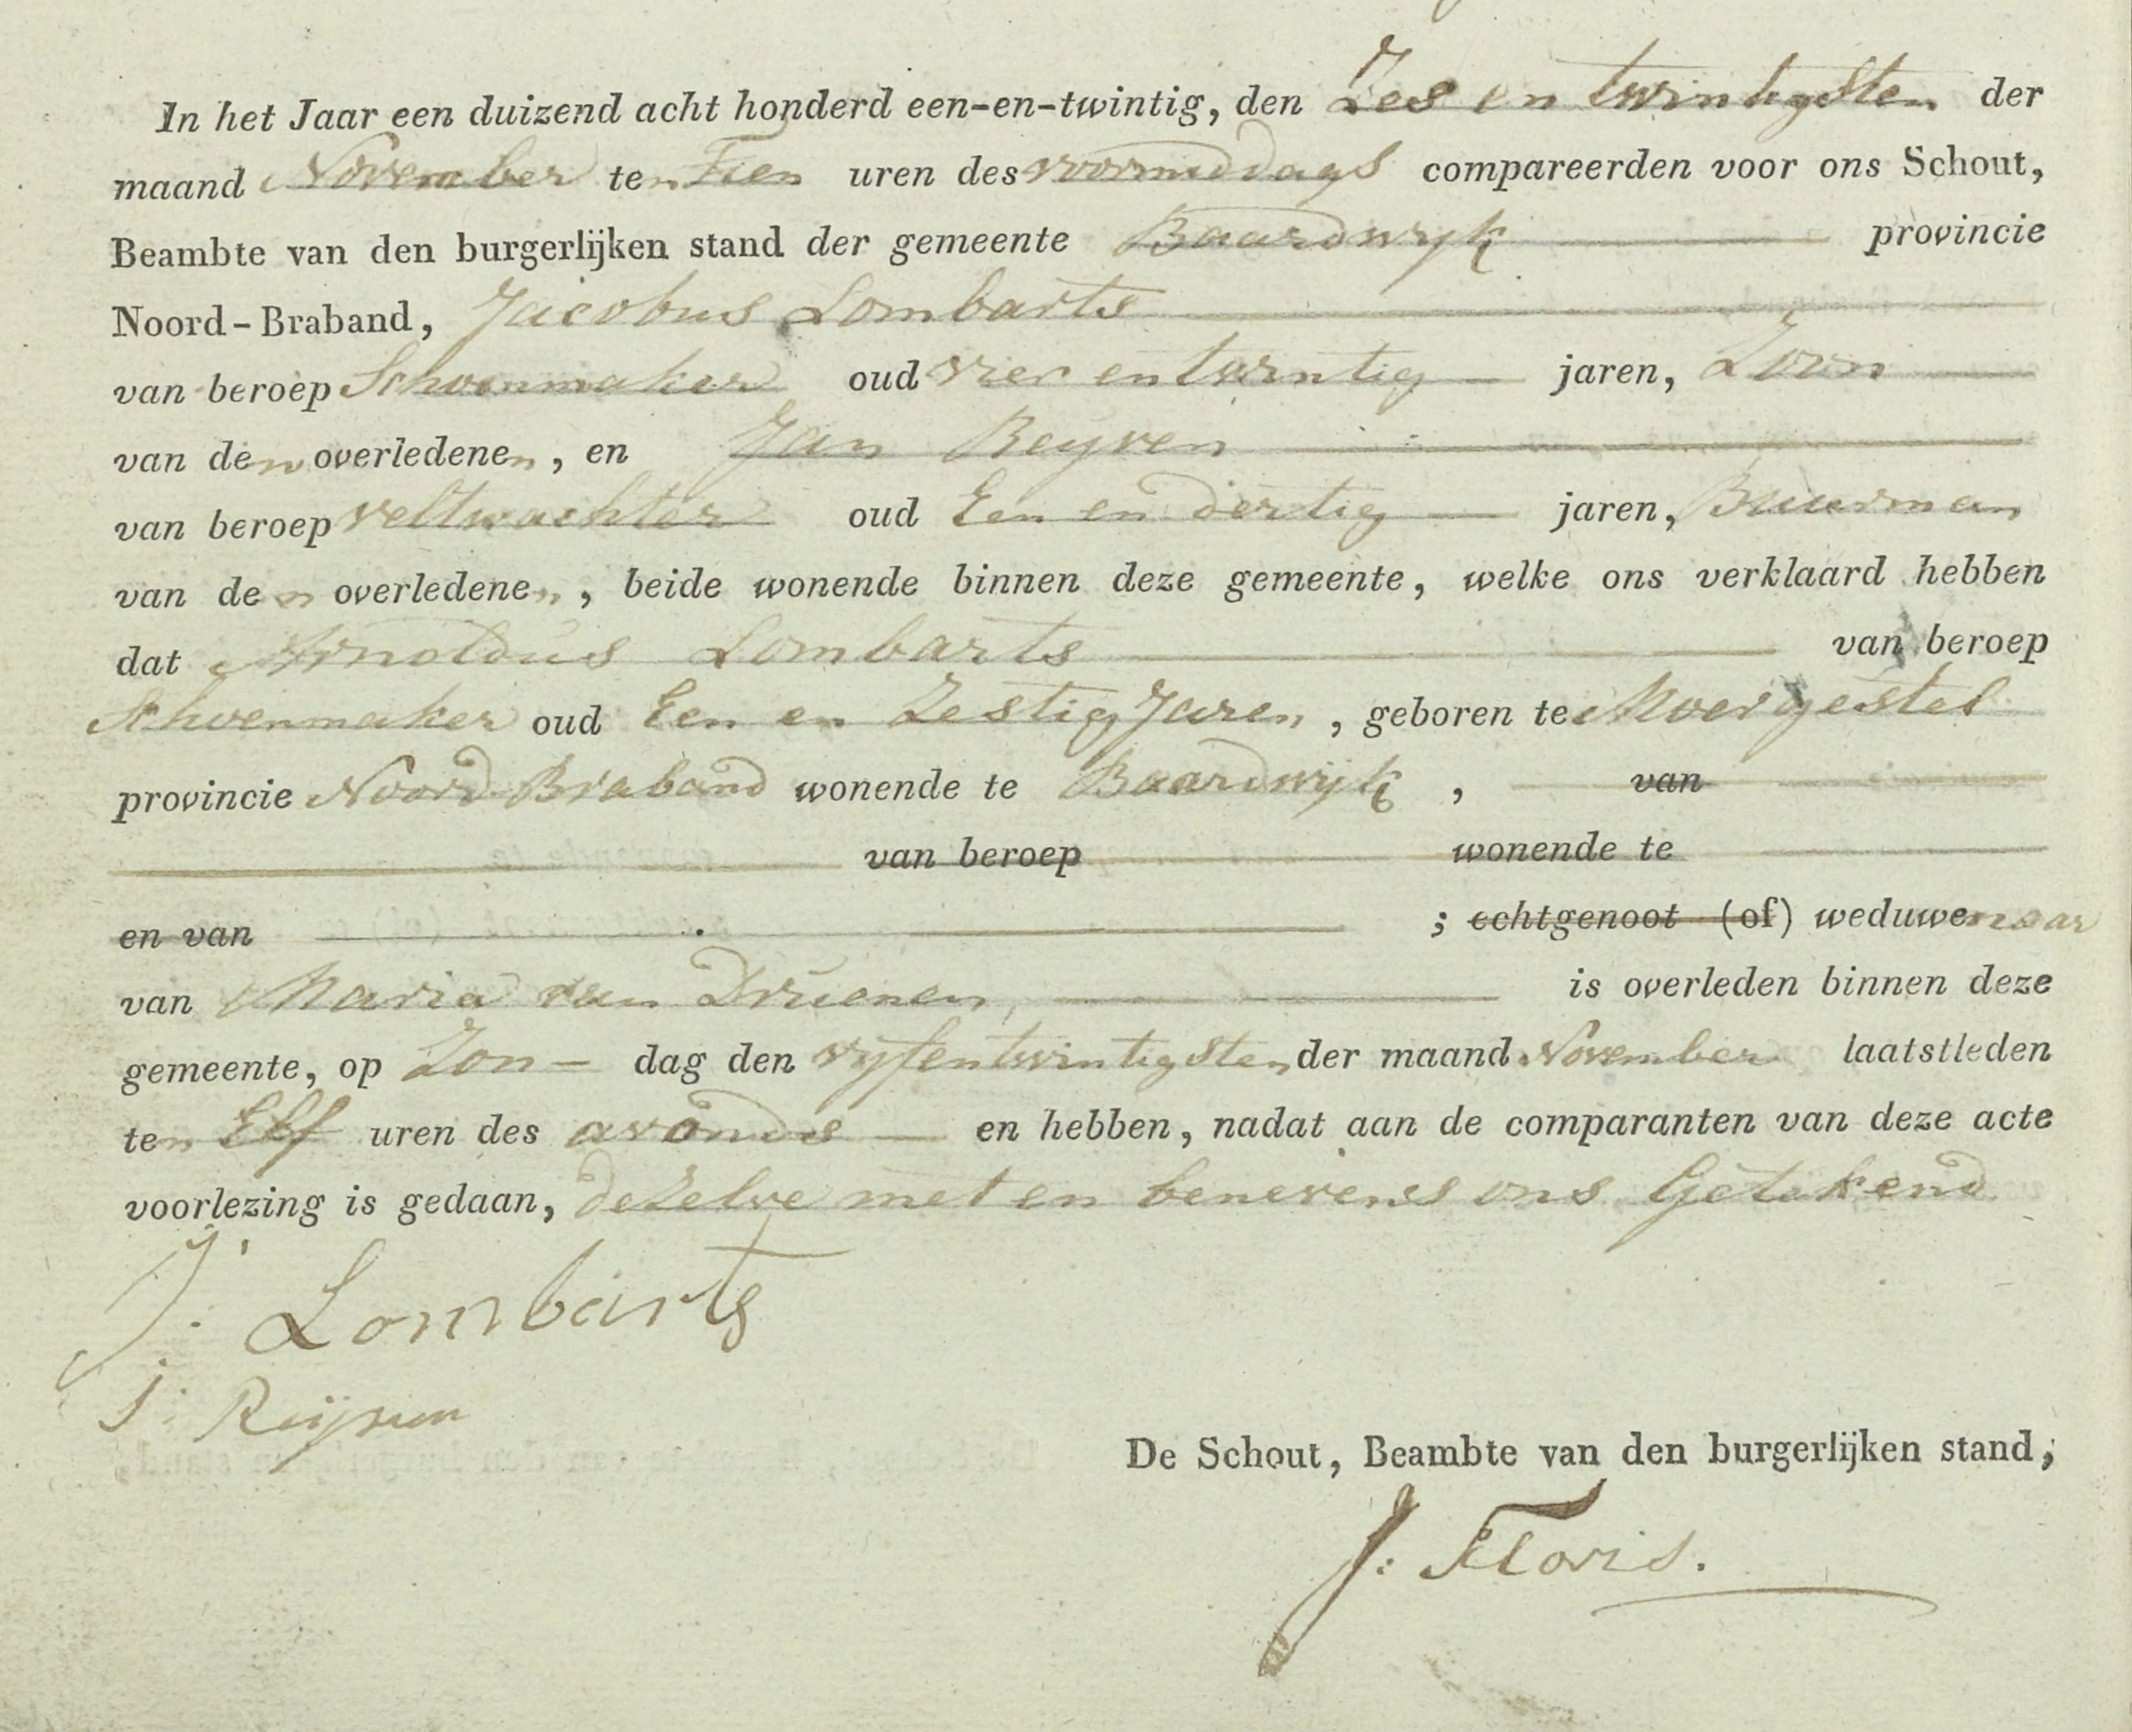 In het Jaar een duizend acht honderd een-en-twintig, den Zes en twintigsten der
maand November ten Tien uren des voormiddags compareerden voor ons Schout,
Beambte van den burgerlijken stand der gemeente Baardwyk provincie
Noord-Braband, Jacobus Lombarts
van beroep Schoenmaker oud vier en twintig jaren, Zoon
van den overledenen, en Jan Reyven
van beroep veltwachter oud Een en dertig jaren, Buurman
van den overledenen, beide wonende binnen deze gemeente, welke ons verklaard hebben
dat Arnoldus Lombarts van beroep
Schoenmaker oud Een en Zestig Jaren, geboren te Moergestel
provincie Noord-Braband wonende te Baardwijk, van
van beroep wonende te
en van ; echtgenoot (of) weduwenaar
van Maria van Drúenen, is overleden binnen deze
gemeente, op Zon- dag den vyfentwintigsten der maand November laatstleden
ten Elf uren des avonds en hebben, nadat aan de comparanten van deze acte
voorlezing is gedaan, dezelve met en benevens ons Getekend
J. Lombarts
J: Reijven
De Schout, Beambte van den burgerlijken stand,
J: Floris.